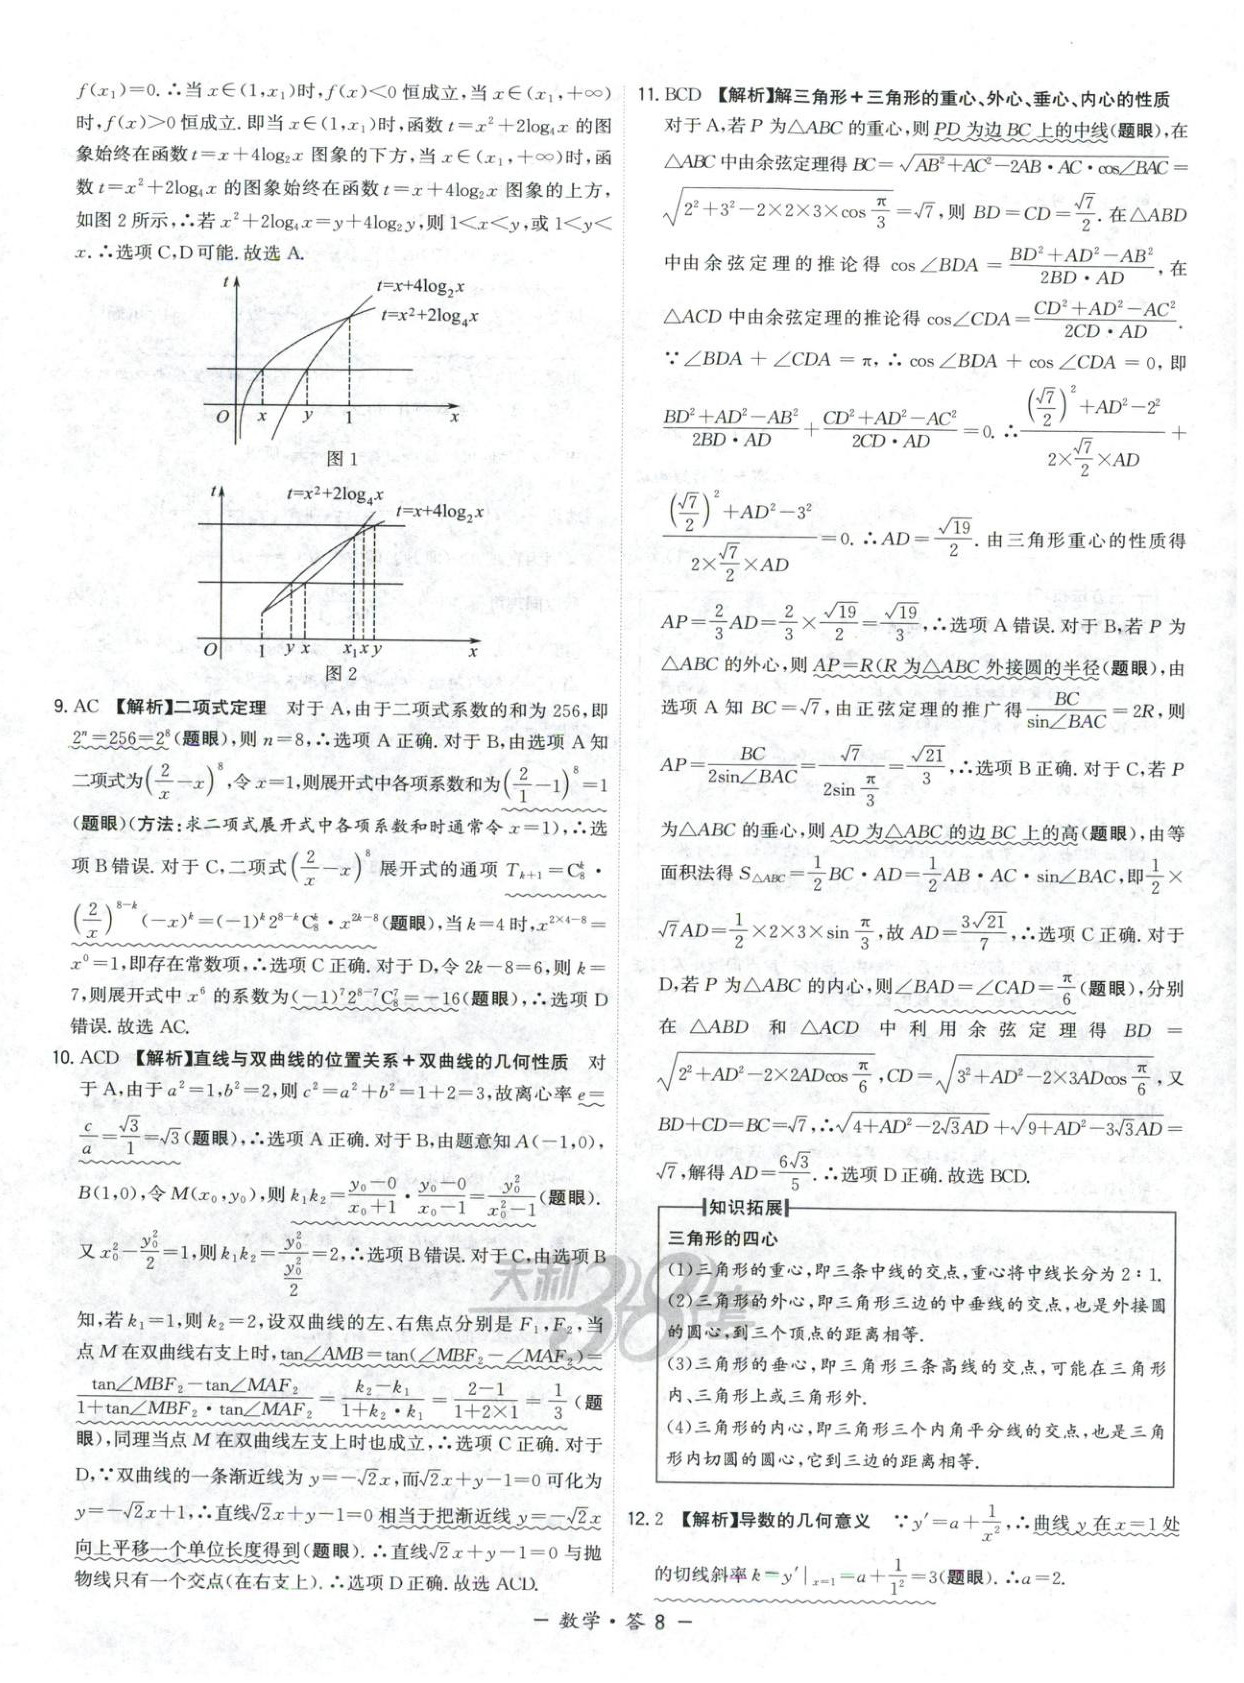 f(x₁)=0. ∴当 x∈(1,x₁)时,f(x)<0 恒成立,当 x∈(x₁,+∞)
时,f(x)>0 恒成立. 即当 x∈(1,x₁)时,函数 t=x²+2log₄x 的图
象始终在函数 t=x+4log₂x 图象的下方,当 x∈(x₁,+∞)时,函
数 t=x²+2log₄x 的图象始终在函数 t=x+4log₂x 图象的上方,
如图 2 所示,∴若 x²+2log₄x=y+4log₂y,则 1<x<y,或 1<y<
x. ∴选项 C,D 可能. 故选 A.
t
t=x+4log₂x
t=x²+2log₄x
O x y 1 x
图 1
t
t=x²+2log₄x
t=x+4log₂x
O 1 y x x₁ x y x
图 2
9. AC 【解析】二项式定理 对于 A,由于二项式系数的和为 256,即
2ⁿ=256=2⁸(题眼),则 n=8,∴选项 A 正确. 对于 B,由选项 A 知
二项式为(2/x−x)⁸,令 x=1,则展开式中各项系数和为(2/1−1)⁸=1
(题眼)(方法:求二项式展开式中各项系数和时通常令 x=1),∴选
项 B 错误. 对于 C,二项式(2/x−x)⁸展开式的通项 Tₖ₊₁=C₈ᵏ·
(2/x)⁸⁻ᵏ(−x)ᵏ=(−1)ᵏ2⁸⁻ᵏC₈ᵏ·x²ᵏ⁻⁸(题眼),当 k=4 时,x²ˣ⁴⁻⁸=
x⁰=1,即存在常数项,∴选项 C 正确. 对于 D,令 2k−8=6,则 k=
7,则展开式中 x⁶ 的系数为(−1)⁷2⁸⁻⁷C₈⁷=−16(题眼),∴选项 D
错误. 故选 AC.
10. ACD 【解析】直线与双曲线的位置关系+双曲线的几何性质 对
于 A,由于 a²=1,b²=2,则 c²=a²+b²=1+2=3,故离心率 e=
c/a=√3/1=√3(题眼),∴选项 A 正确. 对于 B,由题意知 A(−1,0),
B(1,0),令 M(x₀,y₀),则 k₁k₂=(y₀−0)/(x₀+1)·(y₀−0)/(x₀−1)=y₀²/(x₀²−1)(题眼).
又 x₀²−y₀²/2=1,则 k₁k₂=y₀²/(y₀²/2)=2,∴选项 B 错误. 对于 C,由选项 B
知,若 k₁=1,则 k₂=2,设双曲线的左、右焦点分别是 F₁,F₂,当
点 M 在双曲线右支上时,tan∠AMB=tan(∠MBF₂−∠MAF₂)=
(tan∠MBF₂−tan∠MAF₂)/(1+tan∠MBF₂·tan∠MAF₂)=(k₂−k₁)/(1+k₂·k₁)=(2−1)/(1+2×1)=1/3(题
眼),同理当点 M 在双曲线左支上时也成立,∴选项 C 正确. 对于
D,∵双曲线的一条渐近线为 y=−√2x,而√2x+y−1=0 可化为
y=−√2x+1,∴直线√2x+y−1=0 相当于把渐近线 y=−√2x
向上平移一个单位长度得到(题眼). ∴直线√2x+y−1=0 与抛
物线只有一个交点(在右支上). ∴选项 D 正确. 故选 ACD.
11. BCD 【解析】解三角形+三角形的重心、外心、垂心、内心的性质
对于 A,若 P 为△ABC 的重心,则 PD 为边 BC 上的中线(题眼),在
△ABC 中由余弦定理得 BC=√(AB²+AC²−2AB·AC·cos∠BAC)=
√(2²+3²−2×2×3×cos π/3)=√7,则 BD=CD=√7/2. 在△ABD
中由余弦定理的推论得 cos∠BDA=(BD²+AD²−AB²)/(2BD·AD),在
△ACD 中由余弦定理的推论得 cos∠CDA=(CD²+AD²−AC²)/(2CD·AD).
∵∠BDA+∠CDA=π,∴cos∠BDA+cos∠CDA=0,即
(BD²+AD²−AB²)/(2BD·AD)+(CD²+AD²−AC²)/(2CD·AD)=0. ∴((√7/2)²+AD²−2²)/(2×√7/2×AD)+
((√7/2)²+AD²−3²)/(2×√7/2×AD)=0. ∴AD=√19/2. 由三角形重心的性质得
AP=2/3AD=2/3×√19/2=√19/3,∴选项 A 错误. 对于 B,若 P 为
△ABC 的外心,则 AP=R(R 为△ABC 外接圆的半径)(题眼),由
选项 A 知 BC=√7,由正弦定理的推广得 BC/sin∠BAC=2R,则
AP=BC/(2sin∠BAC)=√7/(2sin π/3)=√21/3,∴选项 B 正确. 对于 C,若 P
为△ABC 的垂心,则 AD 为△ABC 的边 BC 上的高(题眼),由等
面积法得 S△ABC=1/2BC·AD=1/2AB·AC·sin∠BAC,即1/2×
√7AD=1/2×2×3×sin π/3,故 AD=3√21/7,∴选项 C 正确. 对于
D,若 P 为△ABC 的内心,则∠BAD=∠CAD=π/6(题眼),分别
在 △ABD 和 △ACD 中利用余弦定理得 BD=
√(2²+AD²−2×2ADcos π/6),CD=√(3²+AD²−2×3ADcos π/6),又
BD+CD=BC=√7,∴√(4+AD²−2√3AD)+√(9+AD²−3√3AD)=
√7,解得 AD=6√3/5. ∴选项 D 正确. 故选 BCD.
知识拓展
三角形的四心
(1)三角形的重心,即三条中线的交点,重心将中线长分为 2∶1.
(2)三角形的外心,即三角形三边的中垂线的交点,也是外接圆
的圆心,到三个顶点的距离相等.
(3)三角形的垂心,即三角形三条高线的交点,可能在三角形
内、三角形上或三角形外.
(4)三角形的内心,即三角形三个内角平分线的交点,也是三角
形内切圆的圆心,它到三边的距离相等.
12. 2 【解析】导数的几何意义 ∵y′=a+1/x²,∴曲线 y 在 x=1 处
的切线斜率 k=y′|ₓ₌₁=a+1/1²=3(题眼). ∴a=2.
天利38套
— 数学·答 8 —